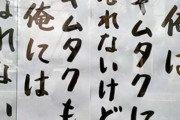 キムタクに
なれないけど
キムタクも
俺には